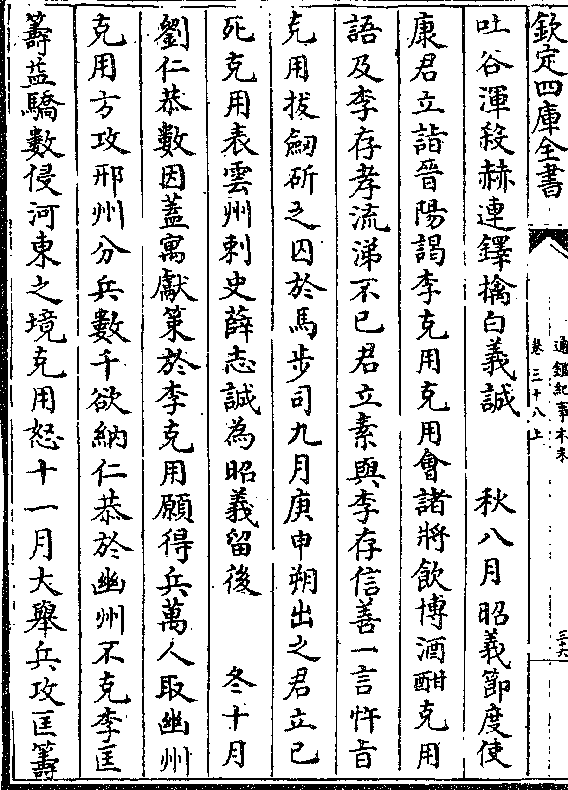 欽定四庫全書
通鑑紀事本末
卷三十八上
三六
吐谷渾殺赫連鐸擒白義誠　秋八月昭義節度使
康君立詣晉陽謁李克用克用會諸將飲博酒酣克用
語及李存孝流涕不已君立素與李存信善一言忤旨
克用拔劒斫之囚於馬步司九月庚申朔出之君立已
死克用表雲州刺史薛志誠為昭義留後　冬十月
劉仁恭數因蓋寓獻策於李克用願得兵萬人取幽州
克用方攻邢州分兵數千欲納仁恭於幽州不克李匡
籌益驕數侵河東之境克用怒十一月大舉兵攻匡籌